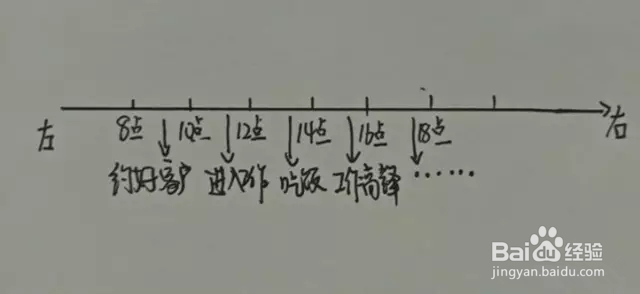 左 8点 10点 12点 14点 16点 18点 右
约好客户 进入工作 吃饭 工作高峰 ……
Baidu经验
jingyan.baidu.com